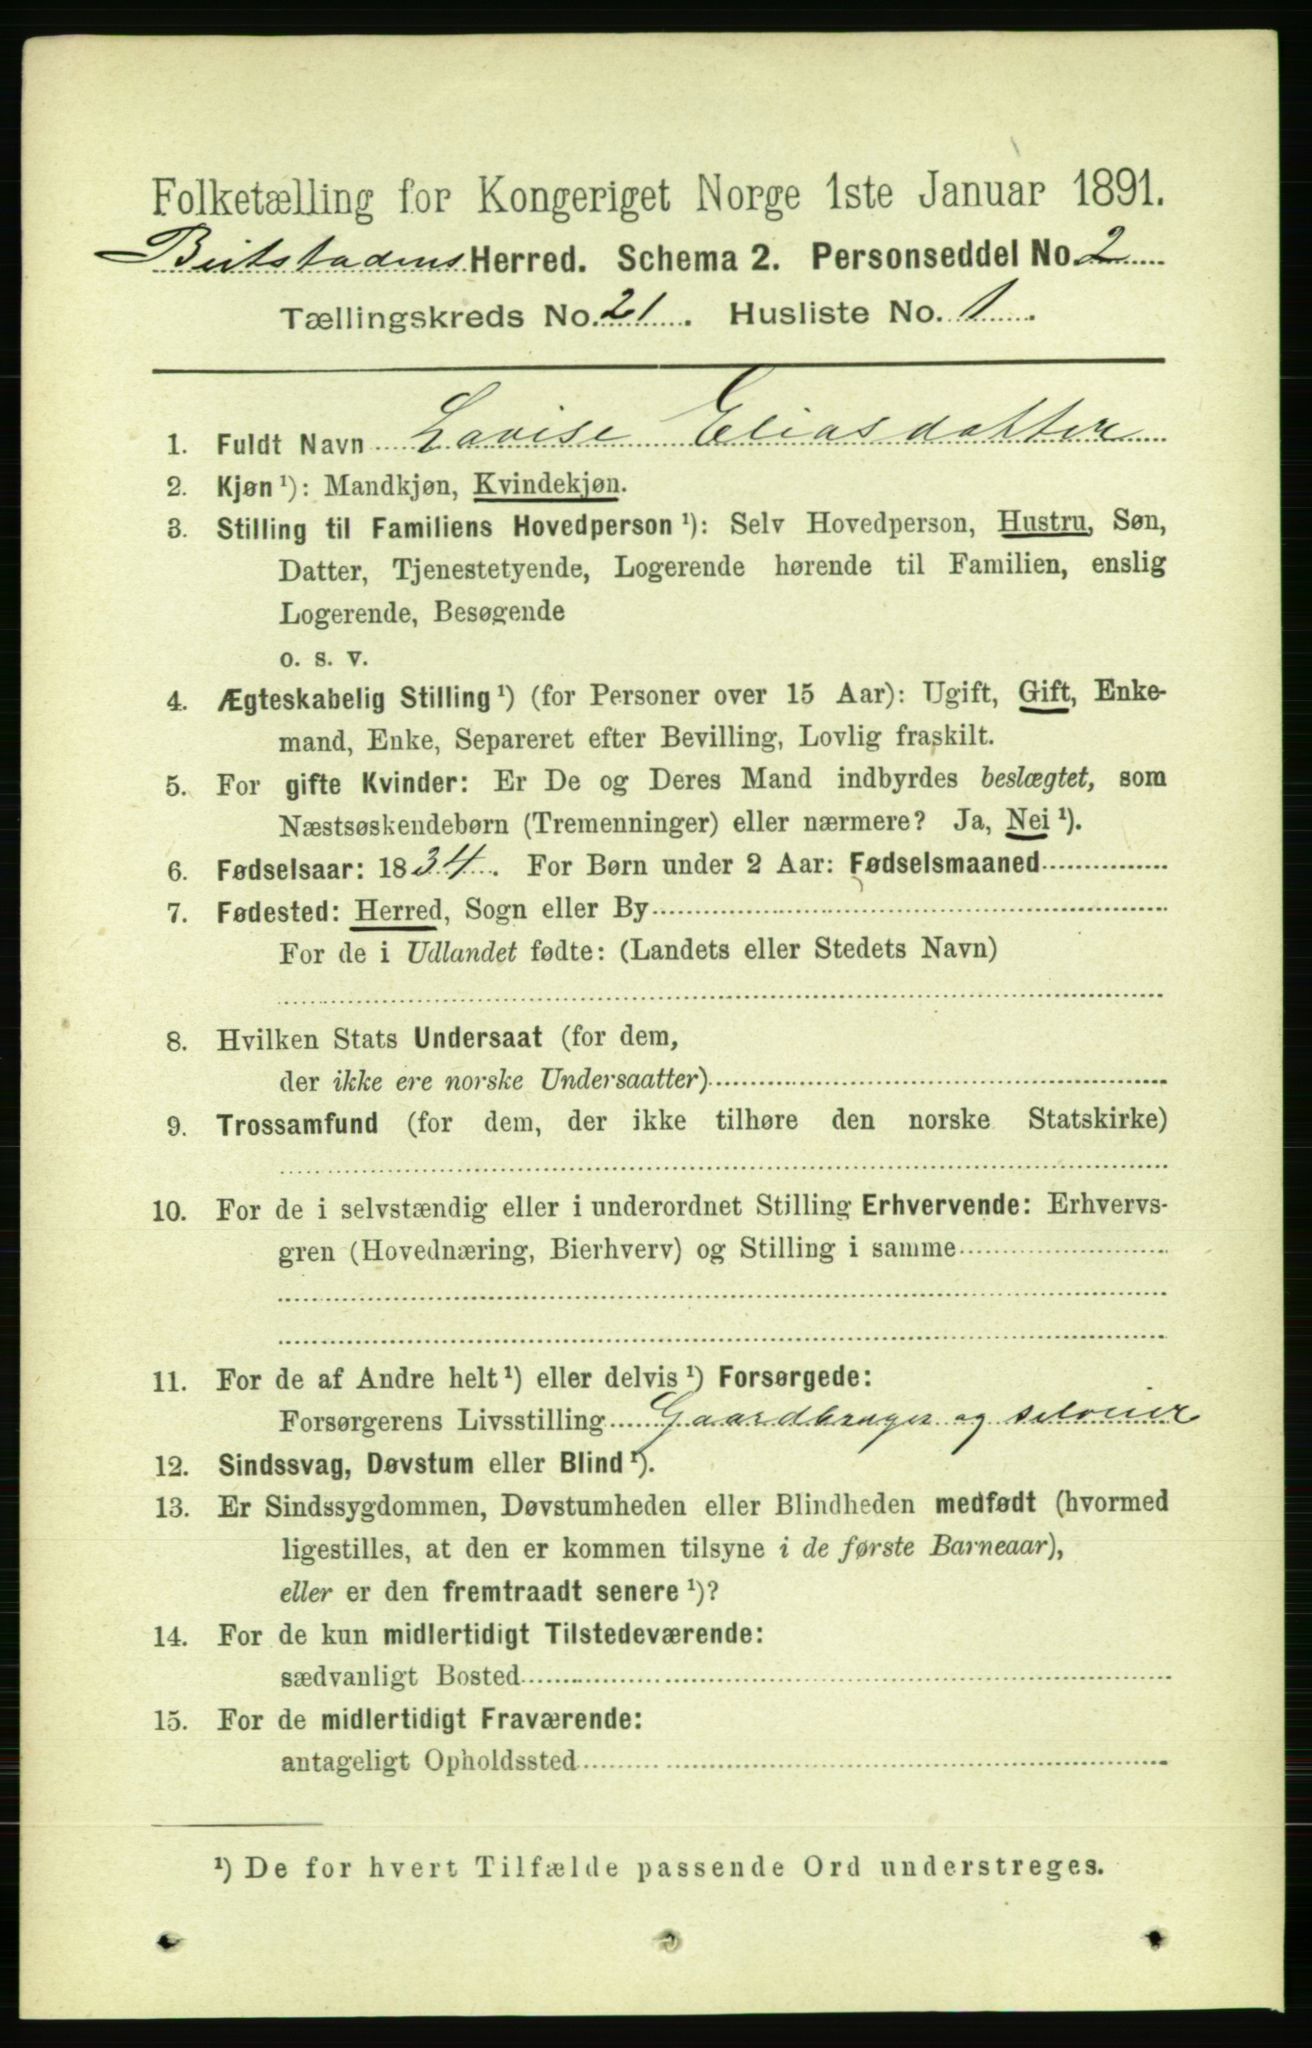 Folketælling for Kongeriget Norge 1ste Januar 1891.
Beitstadens Herred. Schema 2. Personseddel No. 2
Tællingskreds No. 21. Husliste No. 1.
1. Fuldt Navn Lovise Eliasdatter
2. Kjøn ¹): Mandkjøn, Kvindekjøn.
3. Stilling til Familiens Hovedperson ¹): Selv Hovedperson, Hustru, Søn,
Datter, Tjenestetyende, Logerende hørende til Familien, enslig
Logerende, Besøgende
o. s. v.
4. Ægteskabelig Stilling ¹) (for Personer over 15 Aar): Ugift, Gift, Enke-
mand, Enke, Separeret efter Bevilling, Lovlig fraskilt.
5. For gifte Kvinder: Er De og Deres Mand indbyrdes beslægtet, som
Næstsøskendebørn (Tremenninger) eller nærmere? Ja, Nei ¹).
6. Fødselsaar: 1834. For Børn under 2 Aar: Fødselsmaaned
7. Fødested: Herred, Sogn eller By
For de i Udlandet fødte: (Landets eller Stedets Navn)
8. Hvilken Stats Undersaat (for dem,
der ikke ere norske Undersaatter)
9. Trossamfund (for dem, der ikke tilhøre den norske Statskirke)
10. For de i selvstændig eller i underordnet Stilling Erhvervende: Erhvervs-
gren (Hovednæring, Bierhverv) og Stilling i samme
11. For de af Andre helt ¹) eller delvis ¹) Forsørgede:
Forsørgerens Livsstilling Gaardbruger og selveier
12. Sindssvag, Døvstum eller Blind ¹).
13. Er Sindssygdommen, Døvstumheden eller Blindheden medfødt (hvormed
ligestilles, at den er kommen tilsyne i de første Barneaar),
eller er den fremtraadt senere ¹)?
14. For de kun midlertidigt Tilstedeværende:
sædvanligt Bosted
15. For de midlertidigt Fraværende:
antageligt Opholdssted
¹) De for hvert Tilfælde passende Ord understreges.